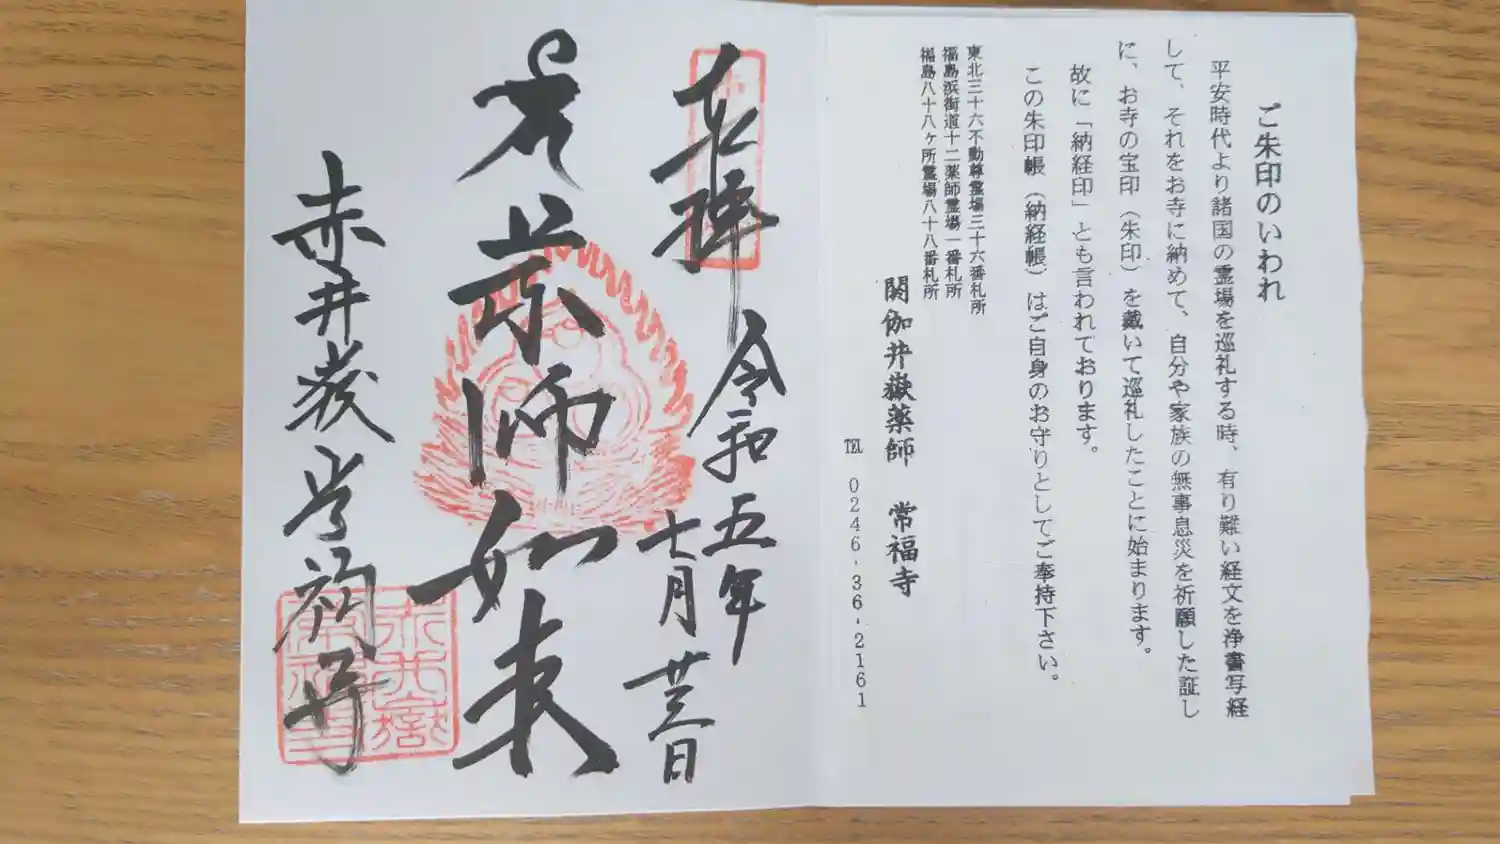 ご朱印のいわれ
平安時代より諸国の霊場を巡礼する時、有り難い経文を浄書写経
して、それをお寺に納めて、自分や家族の無事息災を祈願した証し
に、お寺の宝印（朱印）を戴いて巡礼したことに始まります。
故に「納経印」とも言われております。
この朱印帳（納経帳）はご自身のお守りとしてご奉持下さい。
東北三十六不動尊霊場三十六番札所
福島浜街道十二薬師霊場一番札所
福島八十八ヶ所霊場八十八番札所
閼伽井嶽薬師 常福寺
℡ 0246-36-2161
奉拝 令和五年
七月廿三日
薬師如来
赤井嶽常福寺
赤井嶽
常福寺